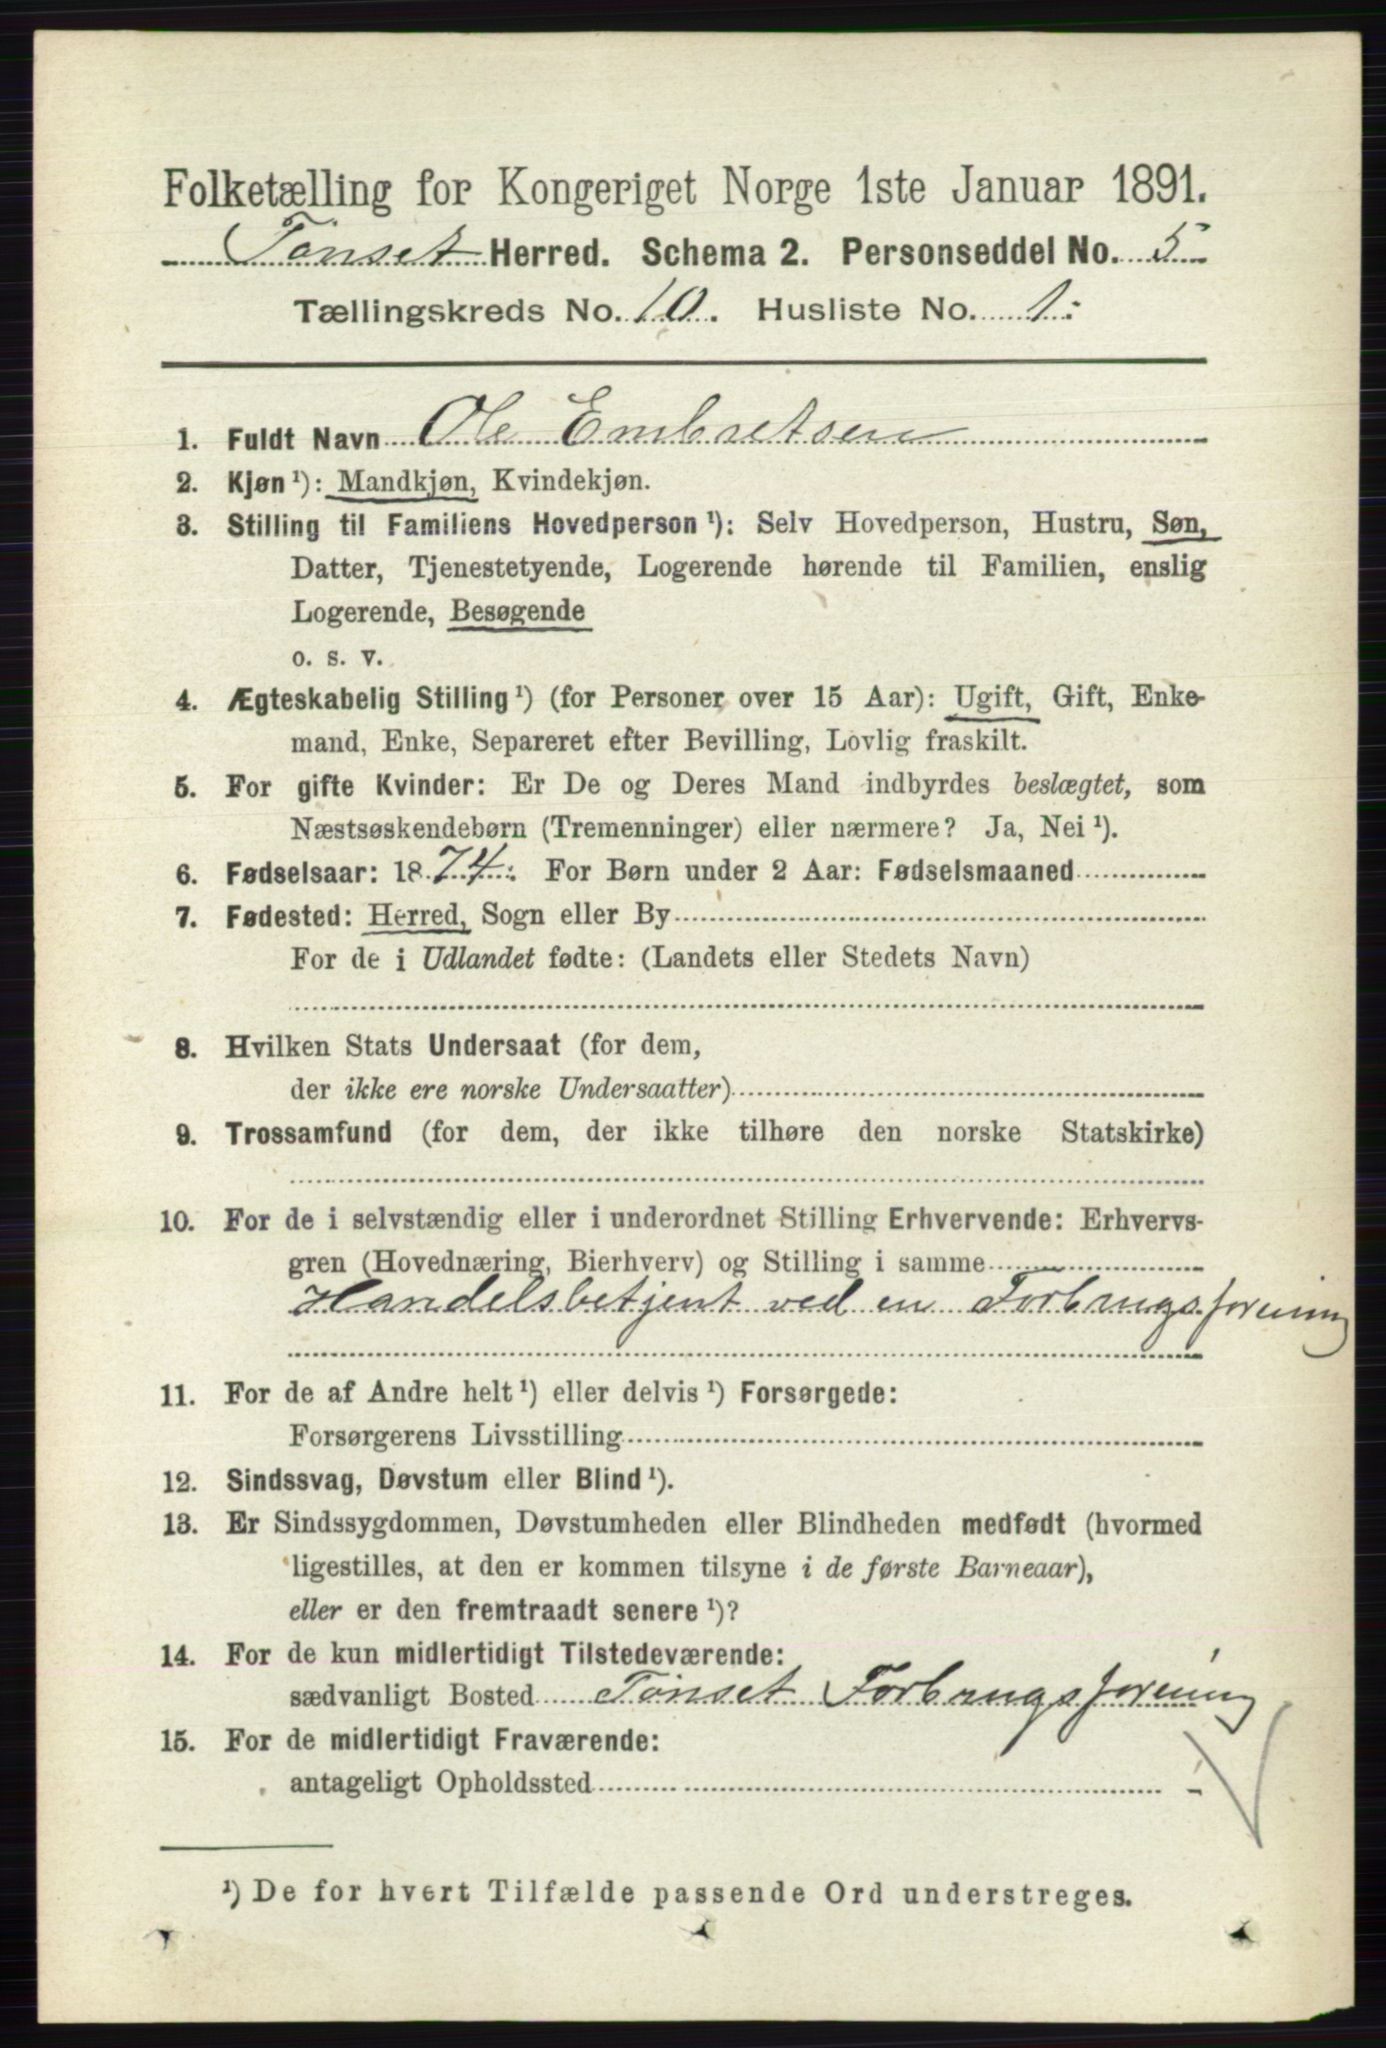 Folketælling for Kongeriget Norge 1ste Januar 1891.
Tønset Herred. Schema 2. Personseddel No. 5
Tællingskreds No. 10. Husliste No. 1:
1. Fuldt Navn Ole Embretsen
2. Kjøn ¹): Mandkjøn, Kvindekjøn.
3. Stilling til Familiens Hovedperson ¹): Selv Hovedperson, Hustru, Søn,
Datter, Tjenestetyende, Logerende hørende til Familien, enslig
Logerende, Besøgende
o. s. v.
4. Ægteskabelig Stilling ¹) (for Personer over 15 Aar): Ugift, Gift, Enke-
mand, Enke, Separeret efter Bevilling, Lovlig fraskilt.
5. For gifte Kvinder: Er De og Deres Mand indbyrdes beslægtet, som
Næstsøskendebørn (Tremenninger) eller nærmere? Ja, Nei ¹).
6. Fødselsaar: 1874. For Børn under 2 Aar: Fødselsmaaned
7. Fødested: Herred, Sogn eller By
For de i Udlandet fødte: (Landets eller Stedets Navn)
8. Hvilken Stats Undersaat (for dem,
der ikke ere norske Undersaatter)
9. Trossamfund (for dem, der ikke tilhøre den norske Statskirke)
10. For de i selvstændig eller i underordnet Stilling Erhvervende: Erhvervs-
gren (Hovednæring, Bierhverv) og Stilling i samme
Handelsbetjent ved en Forbrugsforening
11. For de af Andre helt ¹) eller delvis ¹) Forsørgede:
Forsørgerens Livsstilling
12. Sindssvag, Døvstum eller Blind ¹).
13. Er Sindssygdommen, Døvstumheden eller Blindheden medfødt (hvormed
ligestilles, at den er kommen tilsyne i de første Barneaar),
eller er den fremtraadt senere ¹)?
14. For de kun midlertidigt Tilstedeværende:
sædvanligt Bosted Tønset Forbrugsforening
15. For de midlertidigt Fraværende:
antageligt Opholdssted
¹) De for hvert Tilfælde passende Ord understreges.